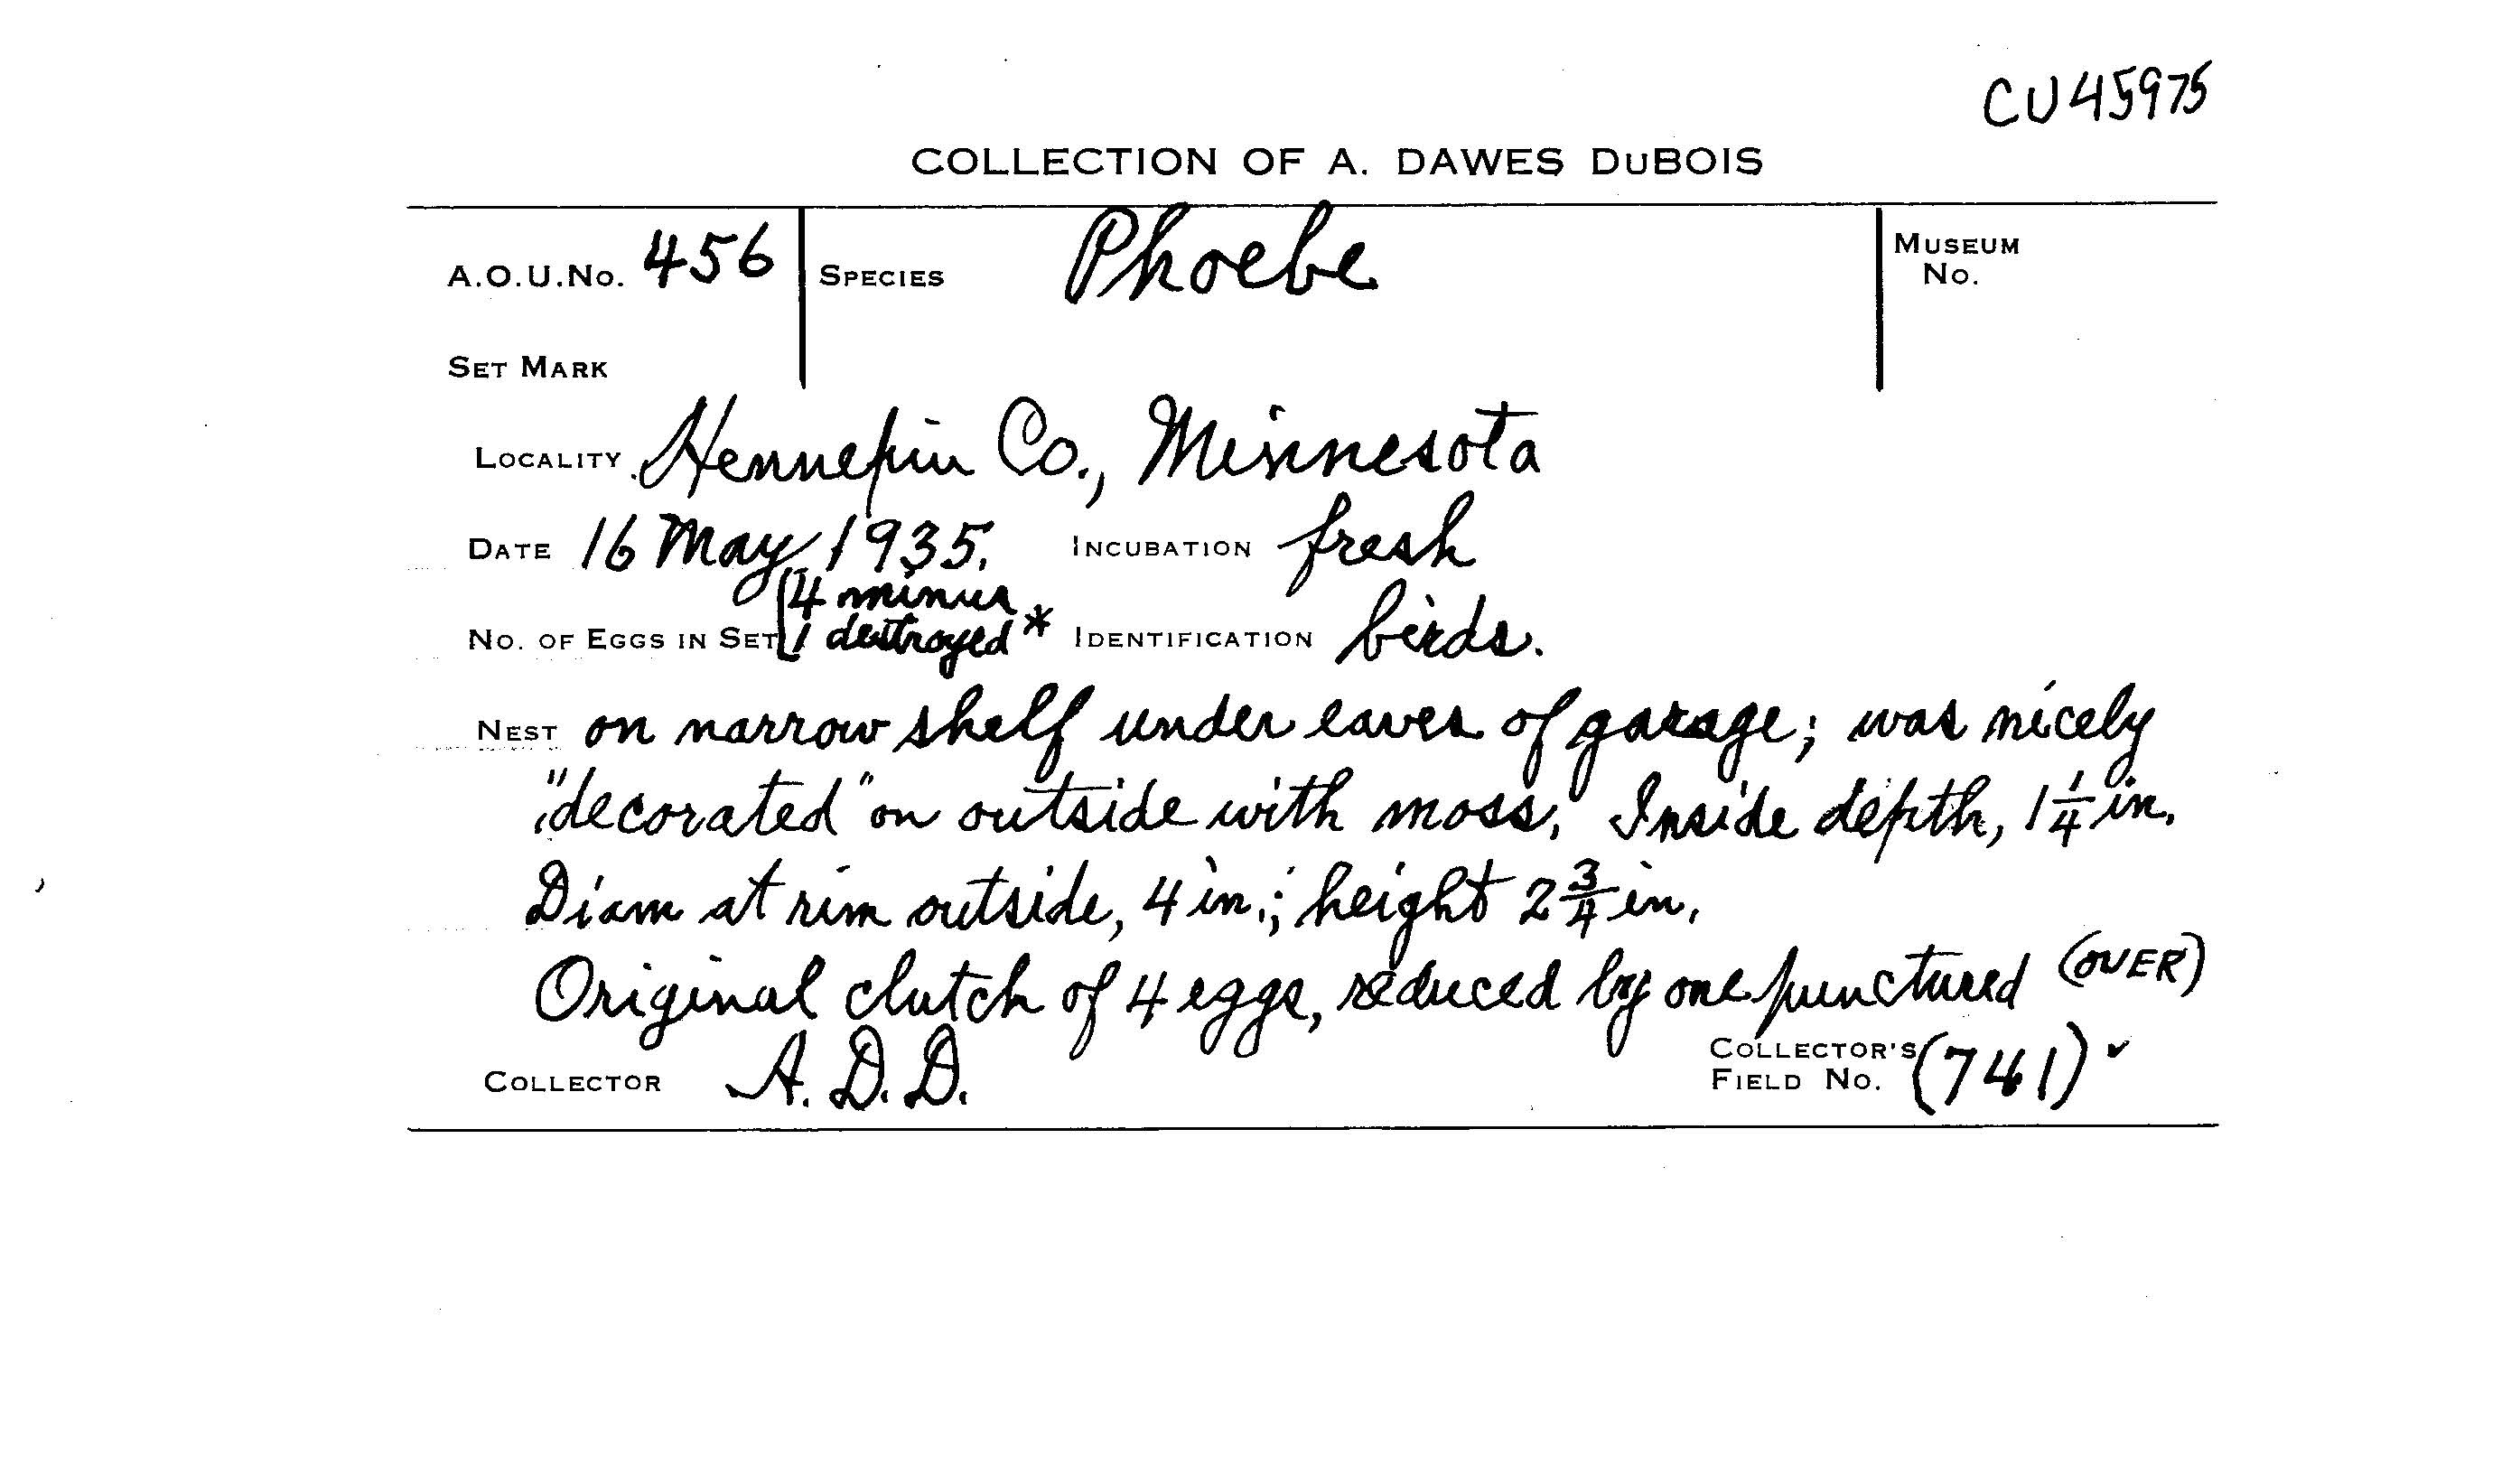 CU45975
COLLECTION OF A. DAWES DuBOIS
A.O.U.No. 456 SPECIES Phoebe MUSEUM No.
SET MARK
LOCALITY Hennepin Co., Minnesota
DATE 16 May 1935. INCUBATION fresh
NO. OF EGGS IN SET {4 minus 1 destroyed* IDENTIFICATION birds.
NEST on narrow shelf under eaves of garage; was nicely
"decorated" on outside with moss. Inside depth, 1 1/4 in.
Diam at rim outside, 4 in.; height 2 3/4 in.
Original clutch of 4 eggs, reduced by one punctured (OVER)
COLLECTOR A. D. D. COLLECTOR'S FIELD No. (741) ✓